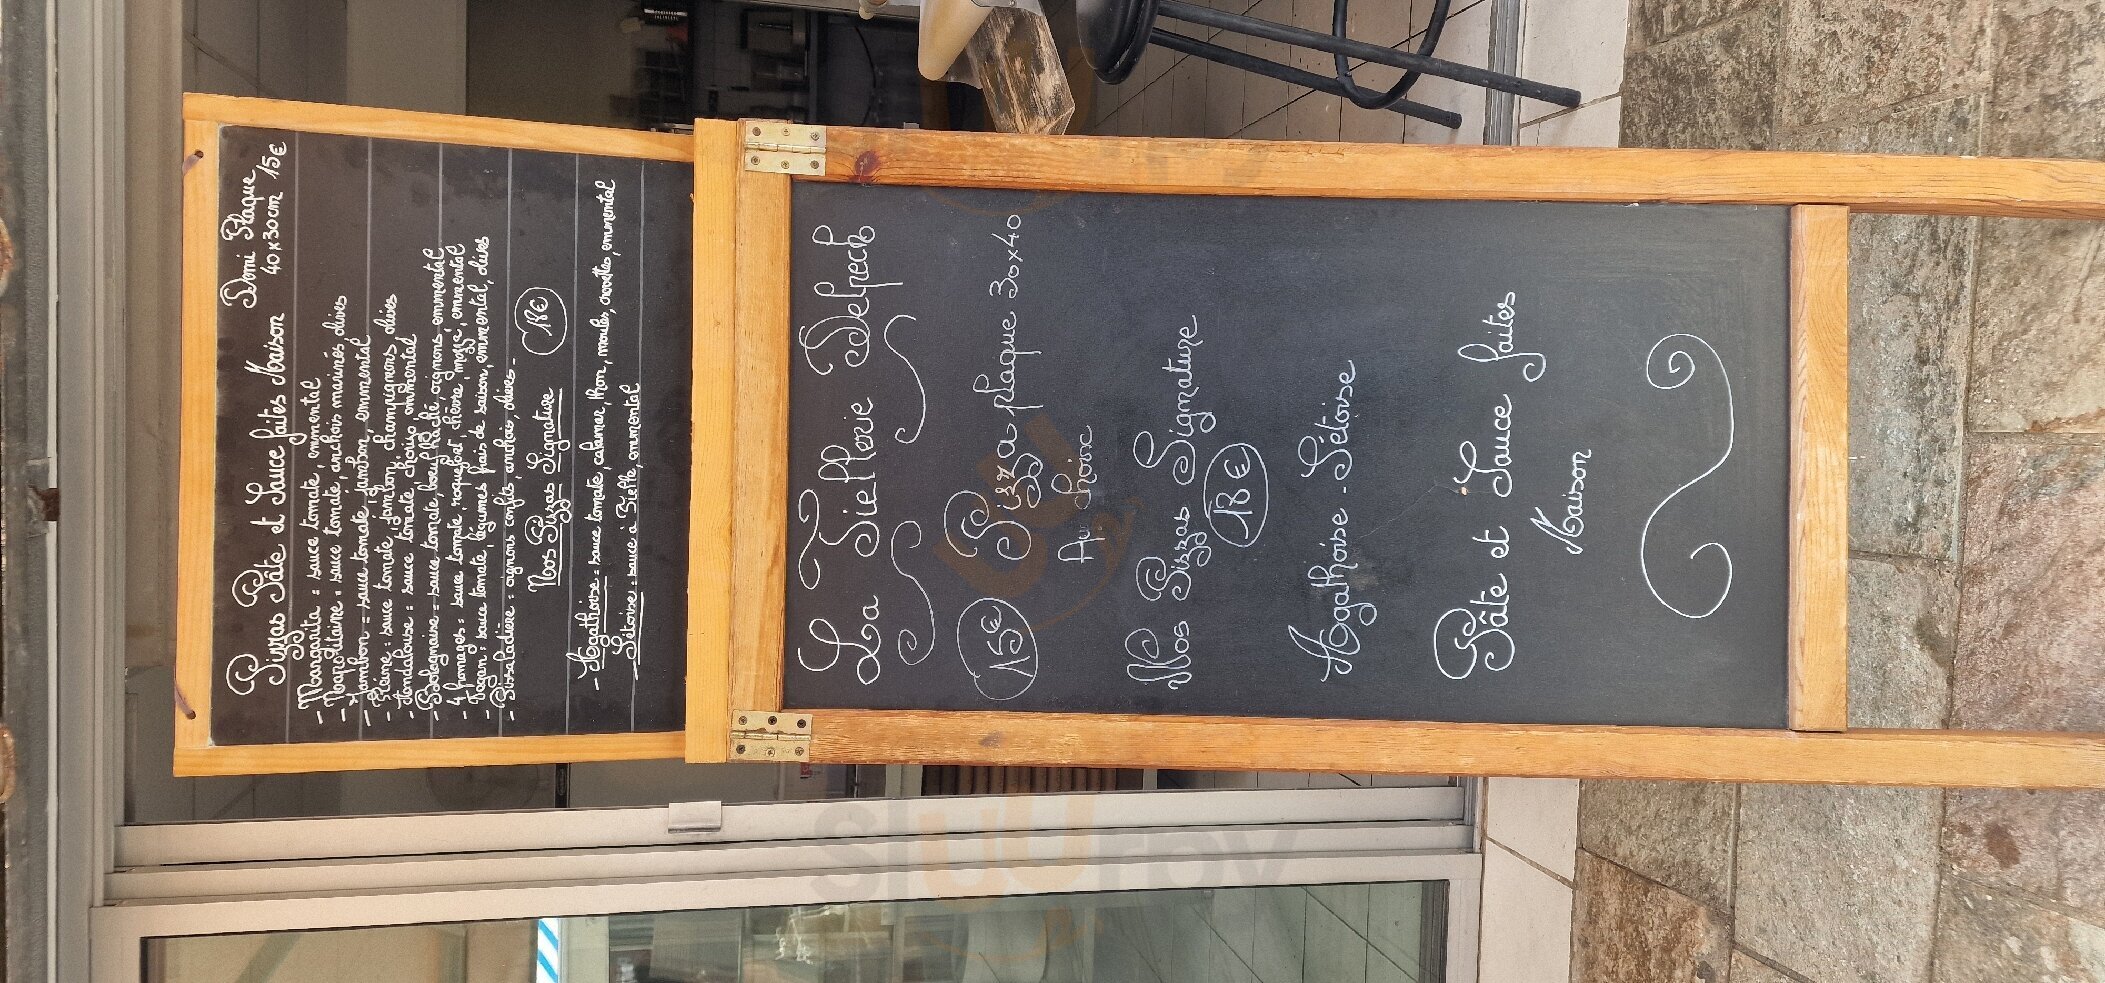 Pizzas Pâte et Sauce faites Maison Demi Plaque
40x30cm 15€
- Margarita : sauce tomate, emmental
- Napolitaine : sauce tomate, anchois marinés, olives
- Jambon : sauce tomate, jambon, emmental
- Reine : sauce tomate, jambon, champignons, olives
- Andalouse : sauce tomate chorizo emmental
- Bolognaise : sauce tomate, boeuf haché, oignons, emmental
- 4 fromages : sauce tomate, roquefort, chèvre, mozza, emmental
- Vegan : sauce tomate, légumes frais de saison, emmental, olives
- Pissaladière : oignons confits, anchois, olives -
Nos Pizzas Signature 18€
- Agathoise : sauce tomate, calamar, thon, moules, crevettes, emmental
- Sétoise : sauce à Tielle, emmental
La Tiellerie Delpech
15€ Pizza plaque 30x40
Au choix
Nos Pizzas Signature
18€
Agathoise - Sétoise
Pâte et Sauce faites
Maison
sluurpy